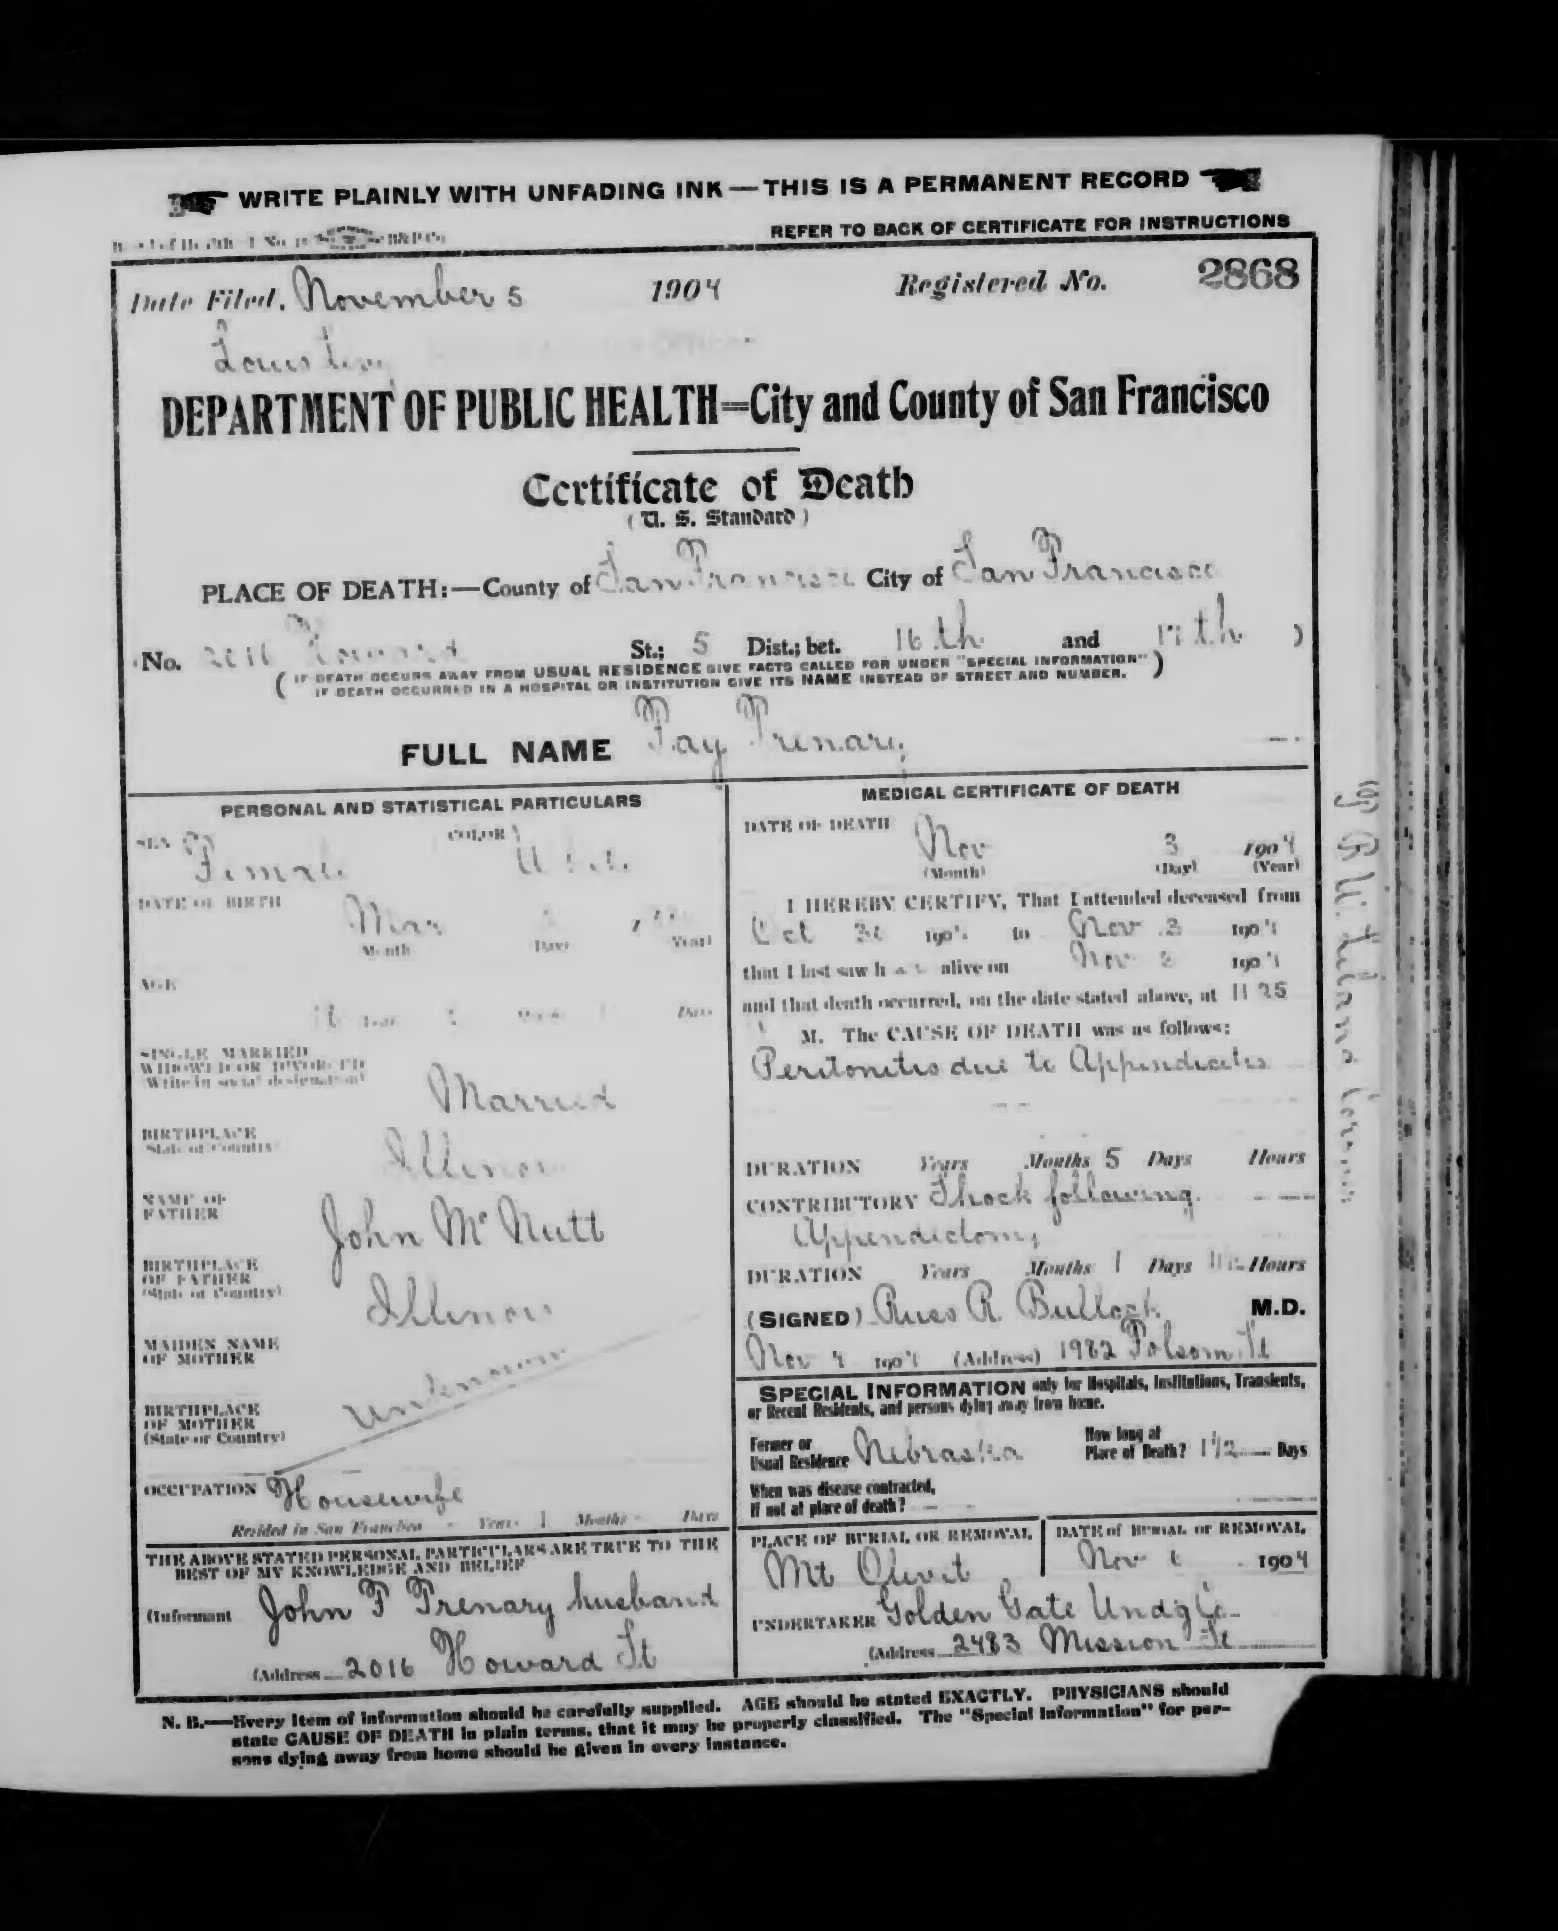 WRITE PLAINLY WITH UNFADING INK — THIS IS A PERMANENT RECORD
REFER TO BACK OF CERTIFICATE FOR INSTRUCTIONS
Date Filed, November 5 1904 Registered No. 2868
DEPARTMENT OF PUBLIC HEALTH=City and County of San Francisco
Certificate of Death
(U. S. Standard)
PLACE OF DEATH:—County of San Francisco City of San Francisco
No. 2016 Howard St.; 5 Dist.; bet. 16th and 17th )
( IF DEATH OCCURS AWAY FROM USUAL RESIDENCE GIVE FACTS CALLED FOR UNDER "SPECIAL INFORMATION" )
IF DEATH OCCURRED IN A HOSPITAL OR INSTITUTION GIVE ITS NAME INSTEAD OF STREET AND NUMBER.
FULL NAME Fay Frenary
PERSONAL AND STATISTICAL PARTICULARS
SEX Female COLOR
DATE OF BIRTH Mar
Month Day Year)
AGE
Years Months Days
SINGLE MARRIED
WIDOWED OR DIVORCED
(Write in social designation)
Married
BIRTHPLACE
(State or Country)
Illinois
NAME OF
FATHER
John McNutt
BIRTHPLACE
OF FATHER
(State or Country)
Illinois
MAIDEN NAME
OF MOTHER
Unknown
BIRTHPLACE
OF MOTHER
(State or Country)
OCCUPATION Housewife
Resided in San Francisco - Years 1 Months - Days
THE ABOVE STATED PERSONAL PARTICULARS ARE TRUE TO THE
BEST OF MY KNOWLEDGE AND BELIEF
(Informant John F Frenary husband
(Address 2016 Howard St
MEDICAL CERTIFICATE OF DEATH
DATE OF DEATH Nov 3 1904
(Month) (Day) (Year)
I HEREBY CERTIFY, That I attended deceased from
Oct 1904 to Nov 3 1904
that I last saw h alive on Nov 1904
and that death occurred, on the date stated above, at 11 25
M. The CAUSE OF DEATH was as follows:
Peritonitis due to Appendicitis
DURATION Years Months 5 Days Hours
CONTRIBUTORY Shock following
Appendictomy
DURATION Years Months 1 Days Hours
(SIGNED) R. Bullock M.D.
Nov 4 1904 (Address) 1982 Folsom St
SPECIAL INFORMATION only for Hospitals, Institutions, Transients,
or Recent Residents, and persons dying away from home.
Former or
Usual Residence Nebraska
How long at
Place of Death? 1 1/2 Days
When was disease contracted,
If not at place of death?
PLACE OF BURIAL OR REMOVAL
Mt Olivet
DATE of BURIAL or REMOVAL
Nov 6 1904
UNDERTAKER Golden Gate Undg Co
(Address 2483 Mission St
N. B.—Every item of information should be carefully supplied. AGE should be stated EXACTLY. PHYSICIANS should
state CAUSE OF DEATH in plain terms, that it may be properly classified. The "Special Information" for per-
sons dying away from home should be given in every instance.